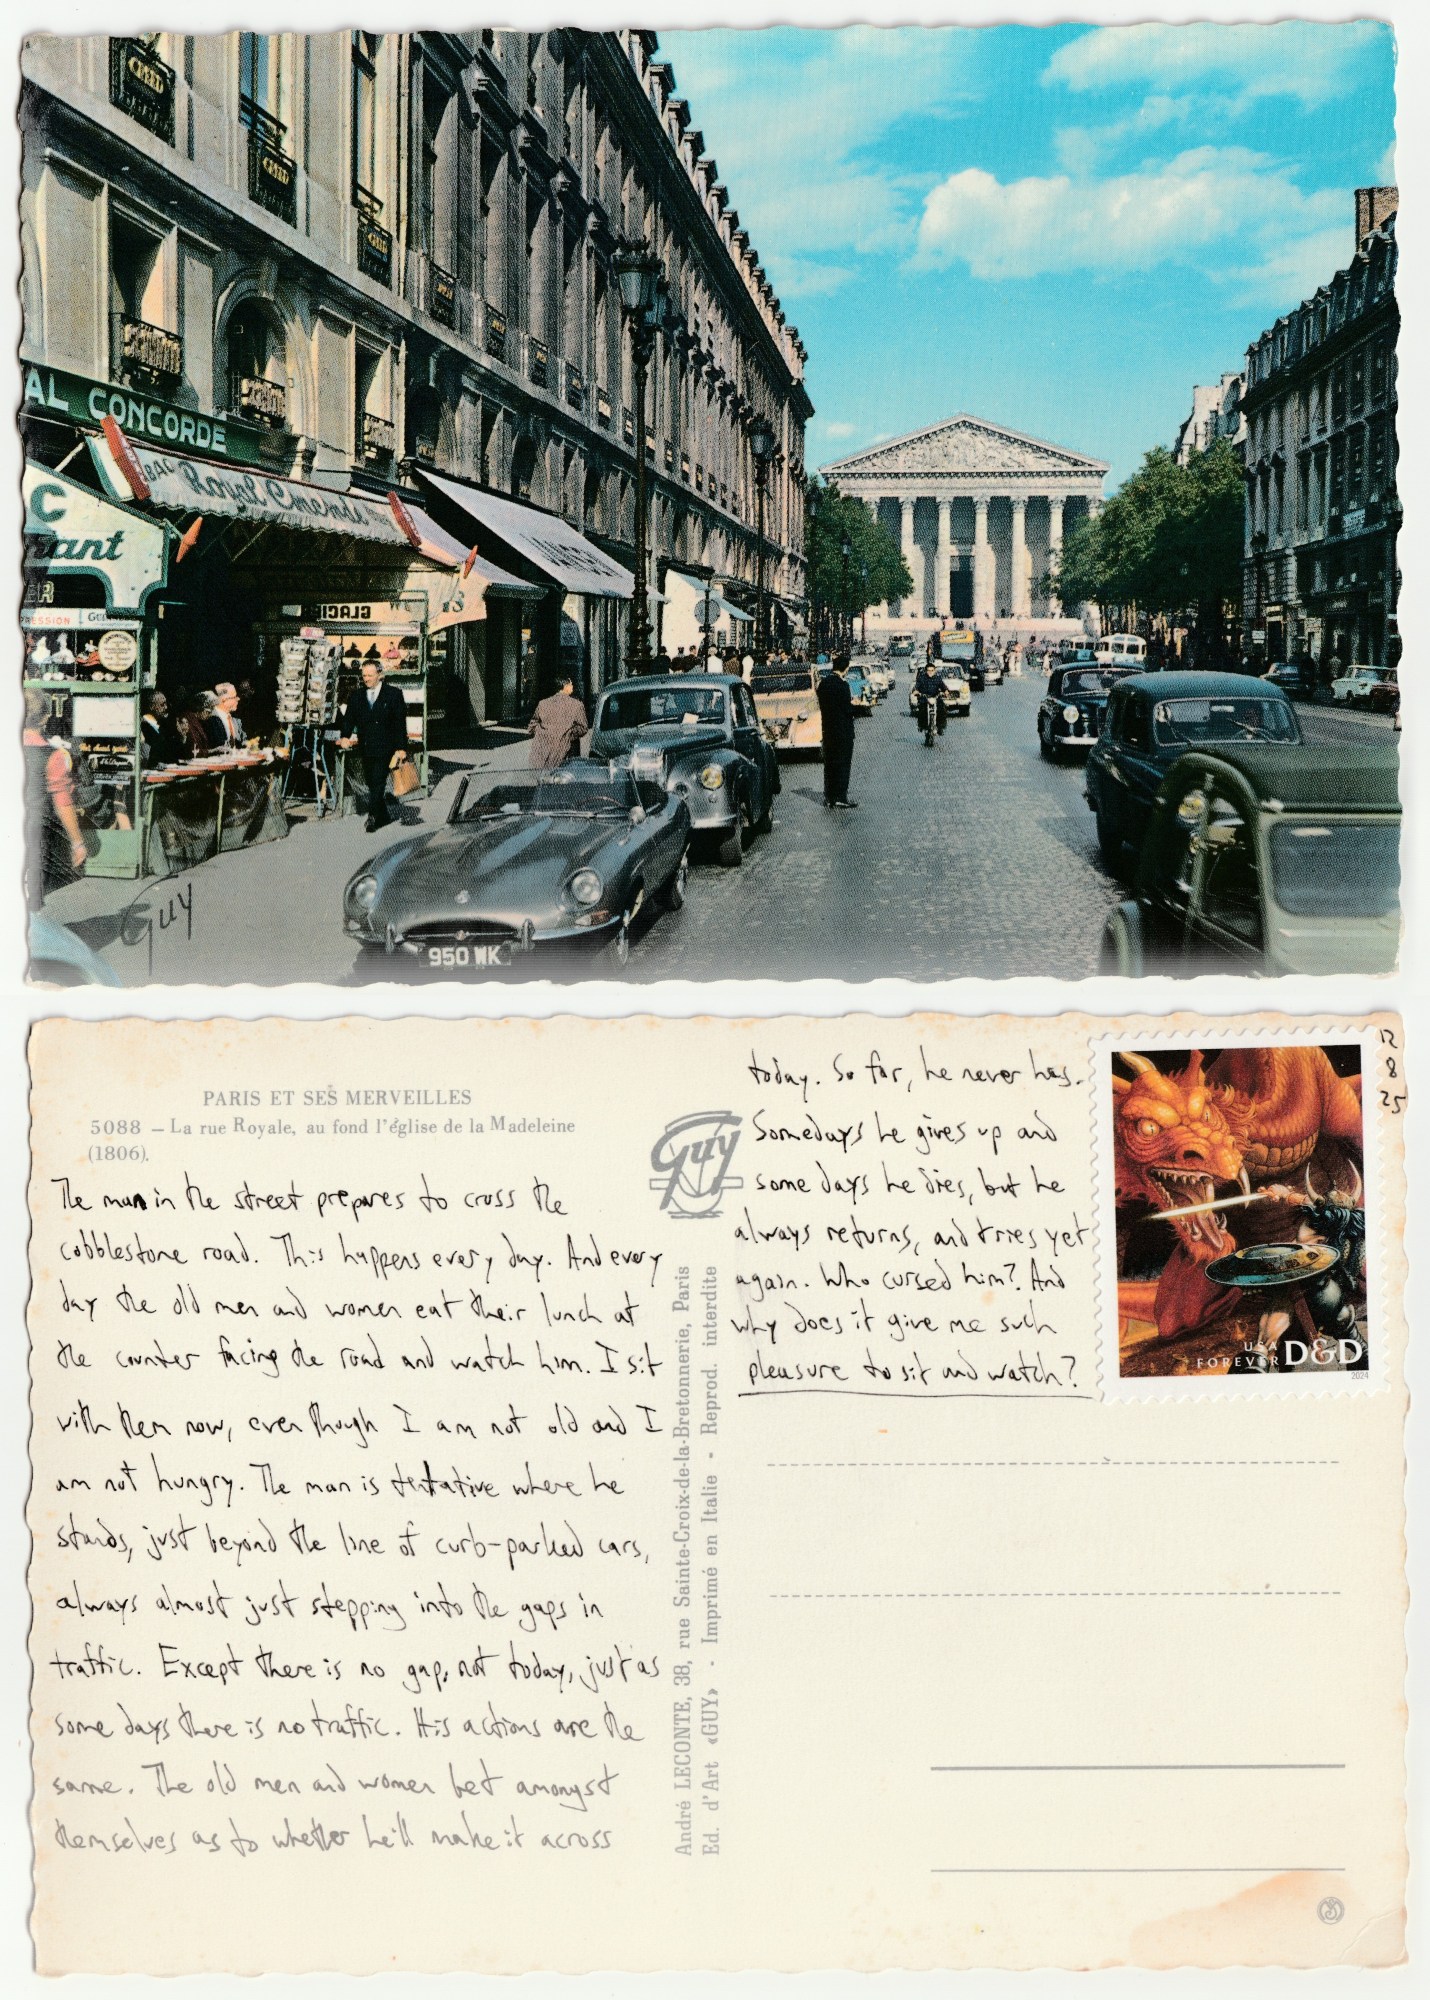 CONCORDE
Royal Cmende
C
GLACIER
950 WK
Guy
PARIS ET SES MERVEILLES
5088 – La rue Royale, au fond l'église de la Madeleine
(1806).
The man in the street prepares to cross the
cobblestone road. This happens every day. And every
day the old men and women eat their lunch at
the counter facing the road and watch him. I sit
with them now, even though I am not old and I
am not hungry. The man is tentative where he
stands, just beyond the line of curb-parked cars,
always almost just stepping into the gaps in
traffic. Except there is no gap, not today, just as
some days there is no traffic. His actions are the
same. The old men and women bet amongst
themselves as to whether he'll make it across
today. So far, he never has.
Somedays he gives up and
some days he dies, but he
always returns, and tries yet
again. Who cursed him? And
why does it give me such
pleasure to sit and watch?
Guy
André LECONTE, 38, rue Sainte-Croix-de-la-Bretonnerie, Paris
Ed. d'Art «GUY» - Imprimé en Italie - Reprod. interdite
USA
FOREVER D&D
2024
12
8
25